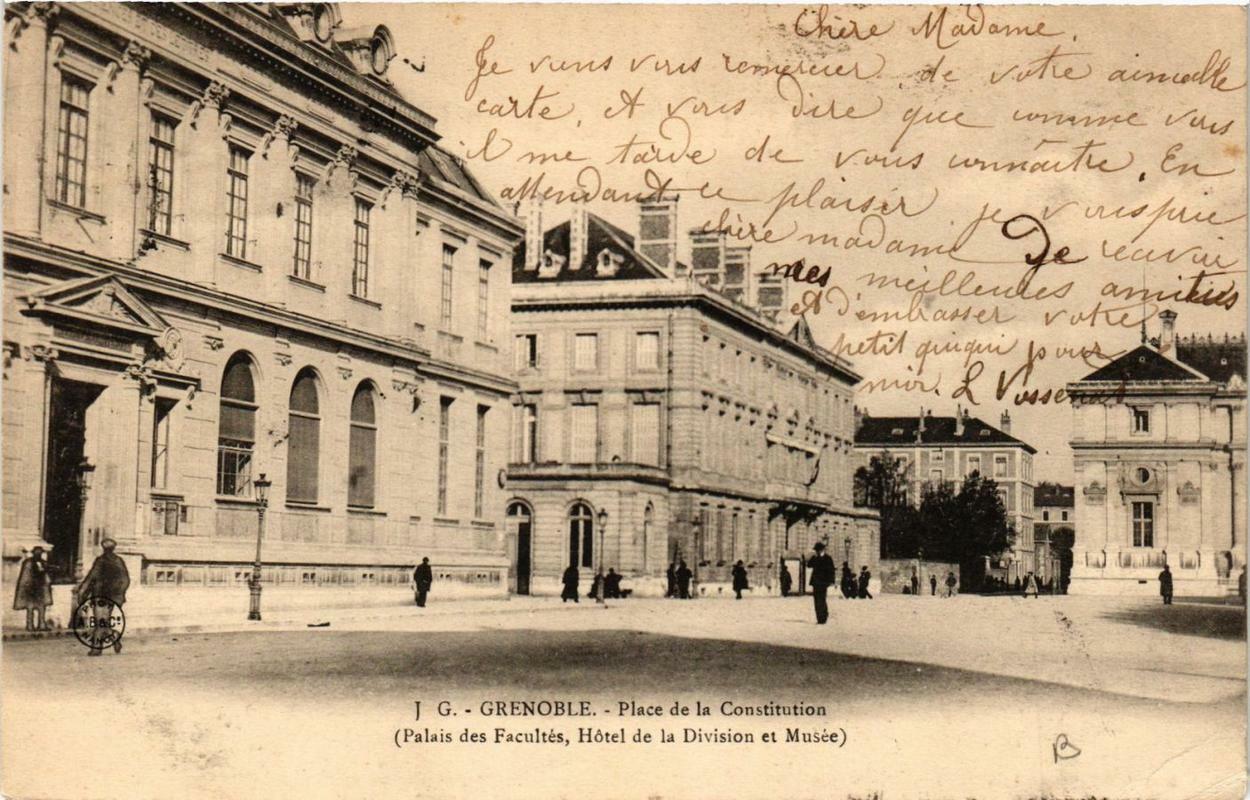 Chère Madame.
Je viens vous remercier de votre aimable
carte, et vous dire que comme vous
il me tarde de vous connaître. En
attendant ce plaisir je vous prie
chère madame De recevoir
mes meilleures amitiés
Et d'embrasser votre
petit quiqui pour
moi. L
J G. - GRENOBLE. - Place de la Constitution
(Palais des Facultés, Hôtel de la Division et Musée)
A.B & Cie
NANCY
B